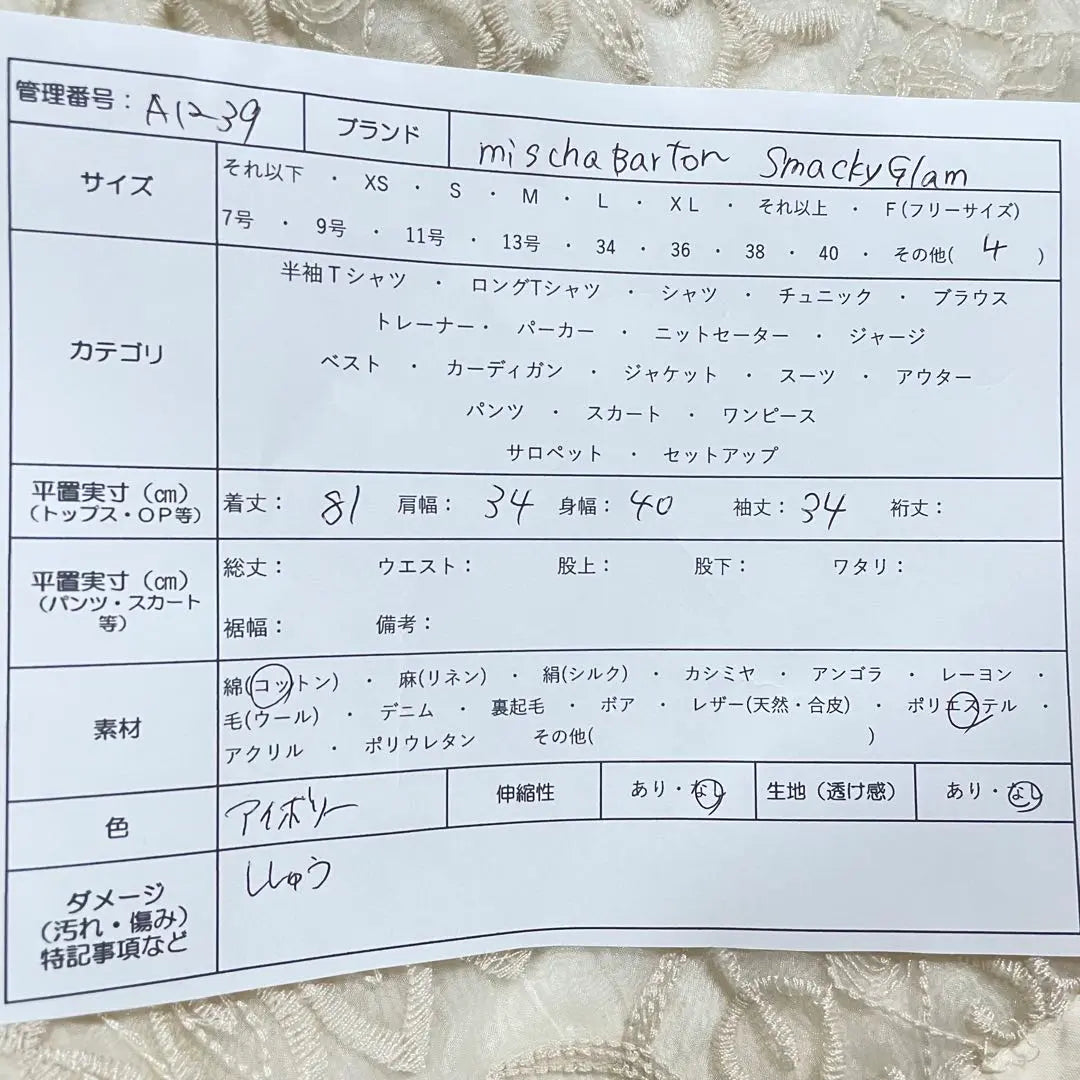 管理番号：A1239 ブランド mischa Barton Smacky Glam
サイズ それ以下 ・ XS ・ S ・ M ・ L ・ XL ・ それ以上 ・ F(フリーサイズ)
7号 ・ 9号 ・ 11号 ・ 13号 ・ 34 ・ 36 ・ 38 ・ 40 ・ その他( 4 )
カテゴリ 半袖Tシャツ ・ ロングTシャツ ・ シャツ ・ チュニック ・ ブラウス
トレーナー・ パーカー ・ ニットセーター ・ ジャージ
ベスト ・ カーディガン ・ ジャケット ・ スーツ ・ アウター
パンツ ・ スカート ・ ワンピース
サロペット ・ セットアップ
平置実寸（㎝）
（トップス・OP等） 着丈： 81 肩幅： 34 身幅： 40 袖丈： 34 裄丈：
平置実寸（㎝）
（パンツ・スカート
等） 総丈： ウエスト： 股上： 股下： ワタリ：
裾幅： 備考：
素材 綿(コットン) ・ 麻(リネン) ・ 絹(シルク) ・ カシミヤ ・ アンゴラ ・ レーヨン ・
毛(ウール) ・ デニム ・ 裏起毛 ・ ボア ・ レザー(天然・合皮) ・ ポリエステル ・
アクリル ・ ポリウレタン その他( )
色 アイボリー 伸縮性 あり・なし 生地（透け感） あり・なし
ダメージ
（汚れ・傷み）
特記事項など ししゅう